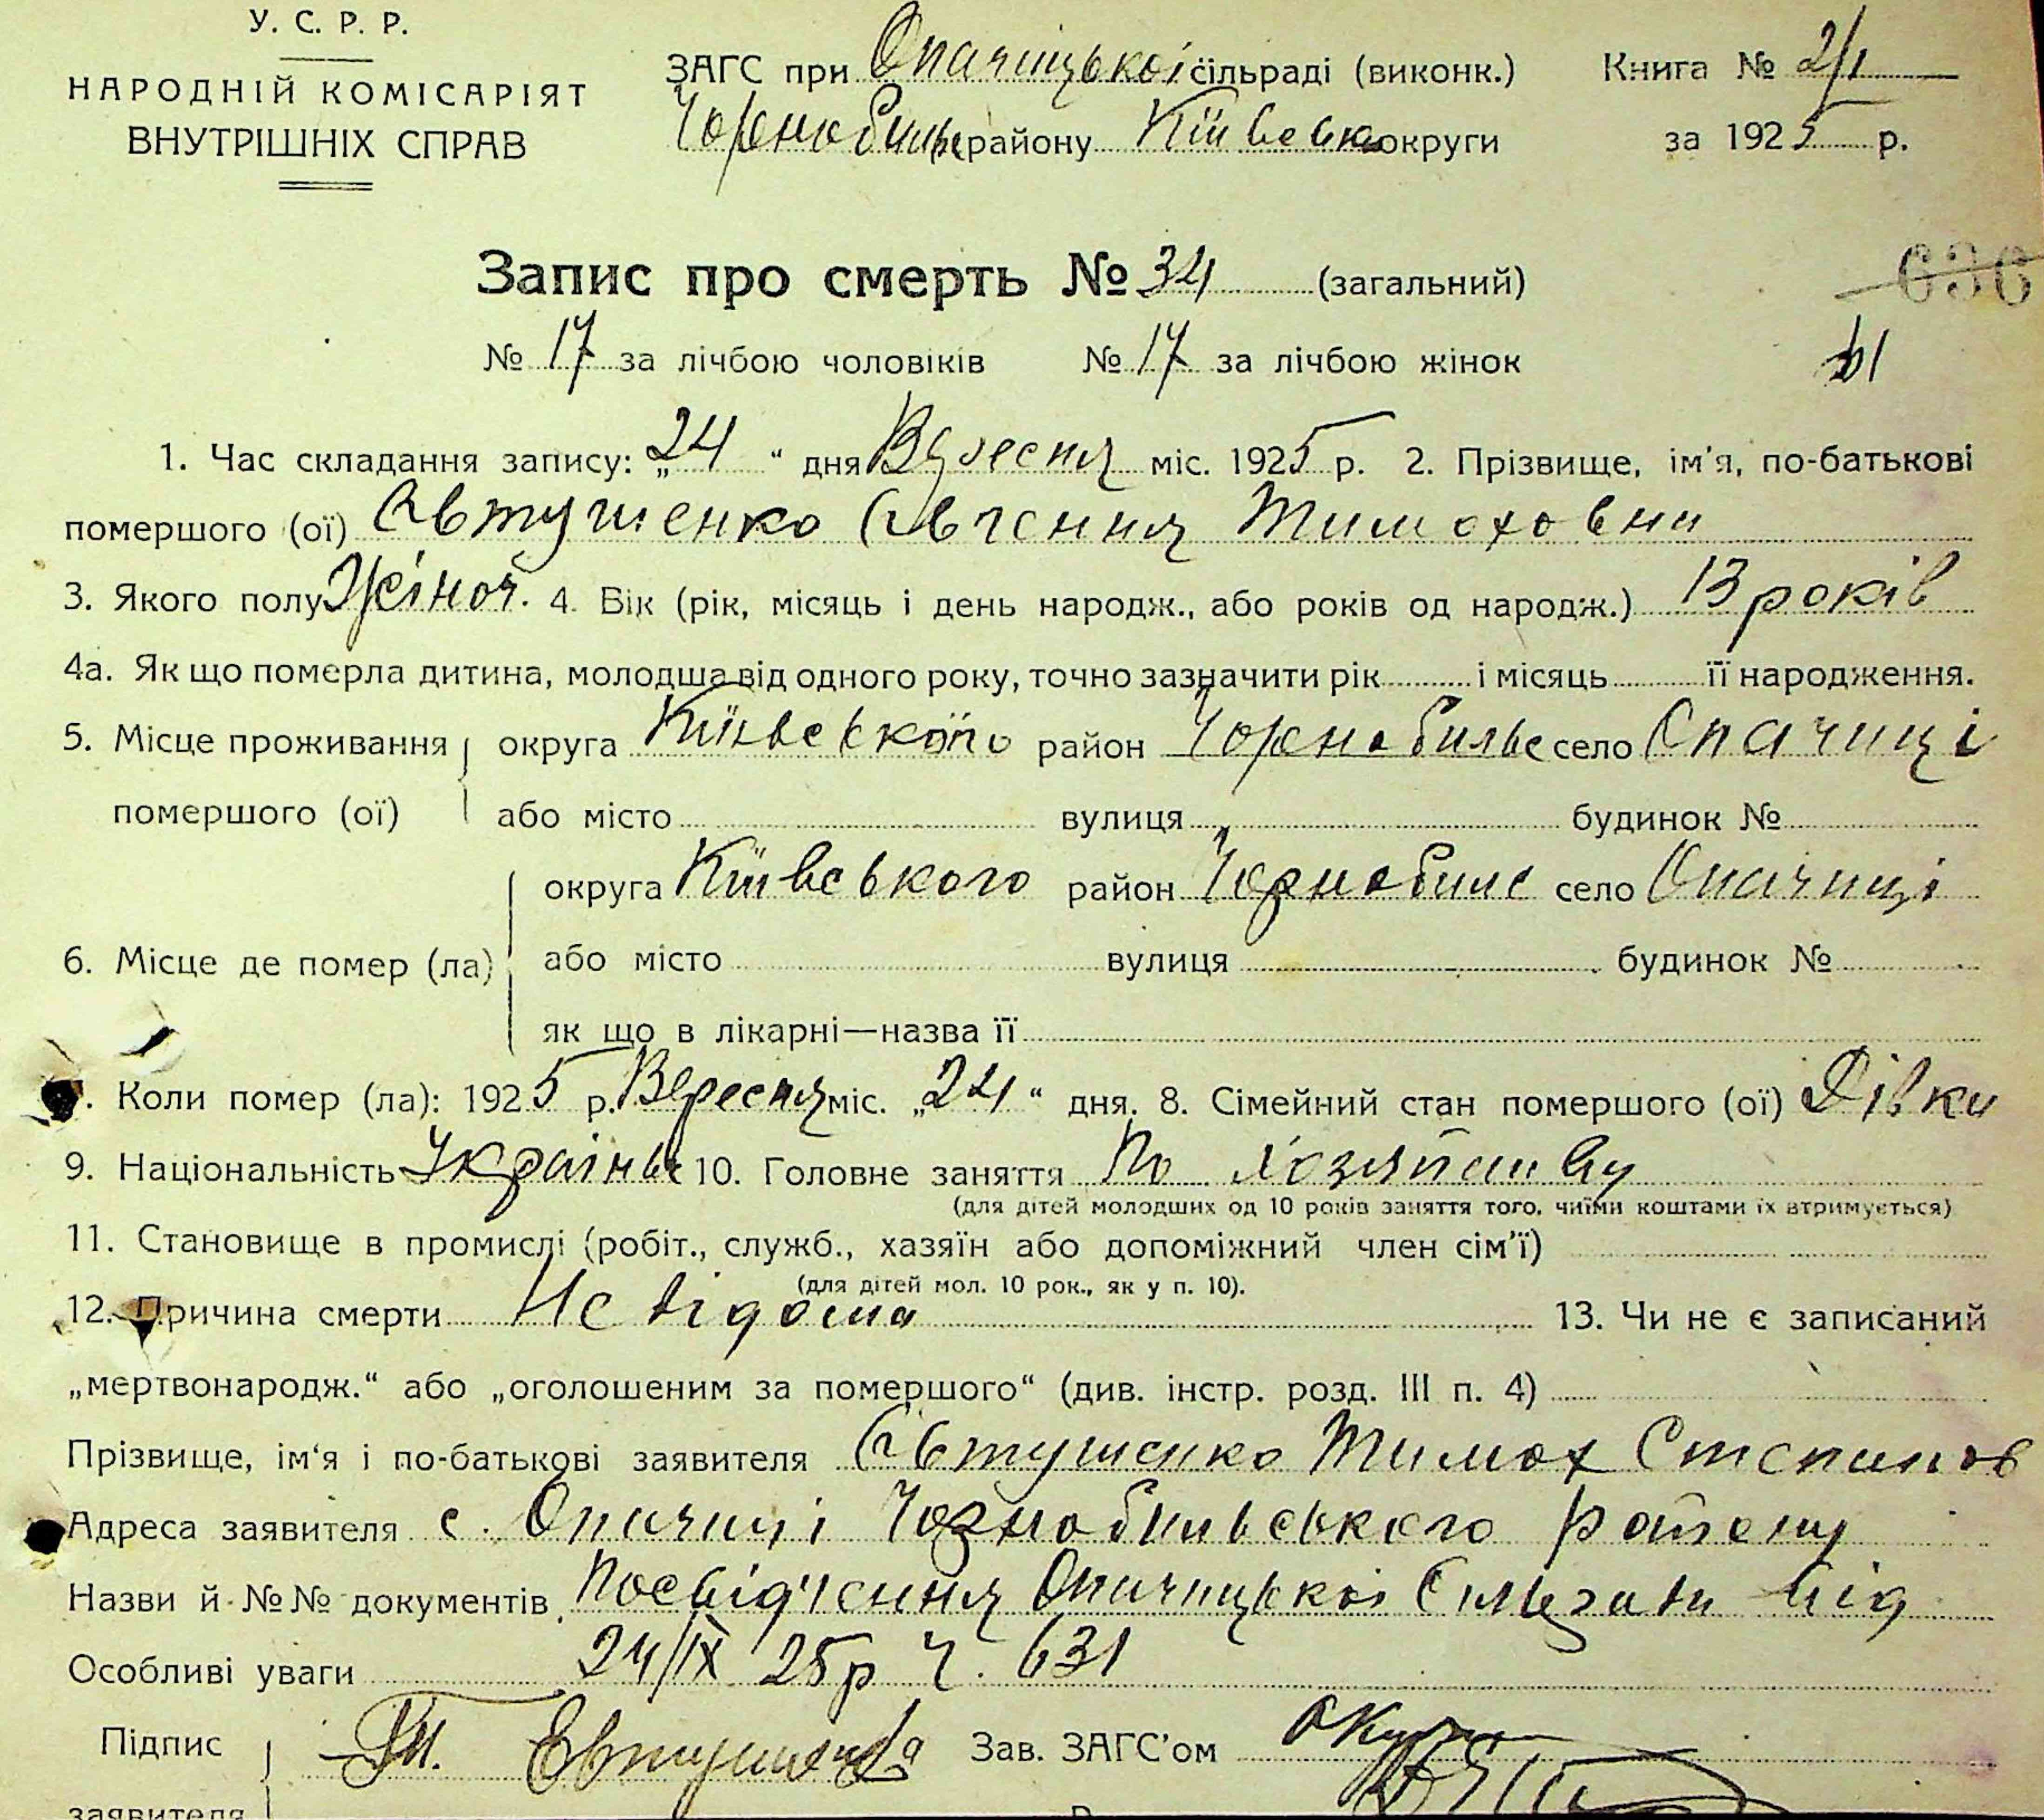 У. С. Р. Р.
НАРОДНІЙ КОМІСАРІЯТ
ВНУТРІШНІХ СПРАВ
ЗАГС при Опачицької сільраді (виконк.)
Чорнобильс району Київсько округи
Книга № 2/1
за 1925 р.
Запис про смерть № 34 (загальний)
636
№ 17 за лічбою чоловіків № 17 за лічбою жінок
1. Час складання запису: „24“ дня Вересня міс. 1925 р. 2. Прізвище, ім'я, по-батькові
помершого (ої) Автушенко Євгения Тимоховни
3. Якого полу Жіноч. 4. Вік (рік, місяць і день народж., або років од народж.) 13 років
4а. Як що померла дитина, молодша від одного року, точно зазначити рік і місяць її народження.
5. Місце проживання округа район Чорнобильс село Опачиці
помершого (ої) або місто вулиця будинок №
округа Київського район Чорнобилс село Опачиці
6. Місце де помер (ла) або місто вулиця будинок №
як що в лікарні—назва її
7. Коли помер (ла): 1925 р. Вересня міс. „24“ дня. 8. Сімейний стан помершого (ої) Дівка
9. Національність 10. Головне заняття По хозяйству
(для дітей молодших од 10 років заняття того, чиїми коштами їх втримується)
11. Становище в промислі (робіт., служб., хазяїн або допоміжний член сім'ї)
(для дітей мол. 10 рок., як у п. 10).
12. Причина смерти Не відома 13. Чи не є записаний
„мертвонародж.“ або „оголошеним за помершого“ (див. інстр. розд. III п. 4)
Прізвище, ім'я і по-батькові заявителя Автушенко Тимох Степанов
Адреса заявителя с. Опачиці Чорнобильського району
Назви й №№ документів Посвідчення Опачицької Сильради від
Особливі уваги 24/IX 25 р Ч. 631
Підпис Тм. Евтушенко Зав. ЗАГС'ом
заявителя